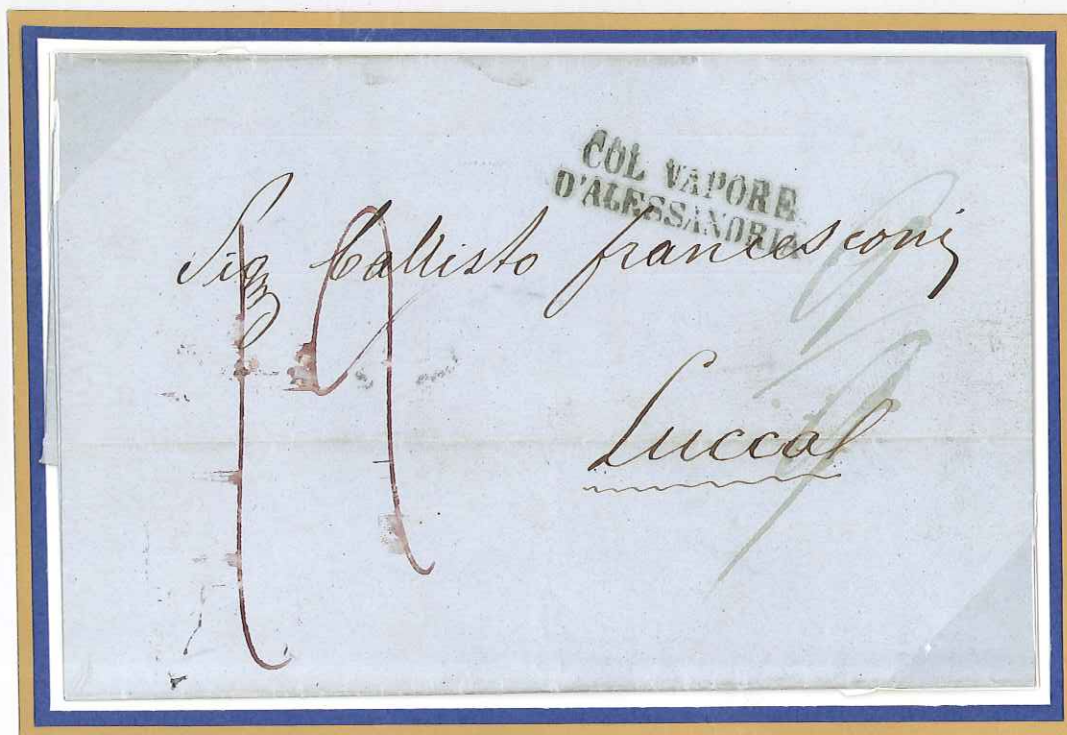 COL VAPORE
D'ALESSANDRIA
Sigr Callisto francesconi
19
Lucca